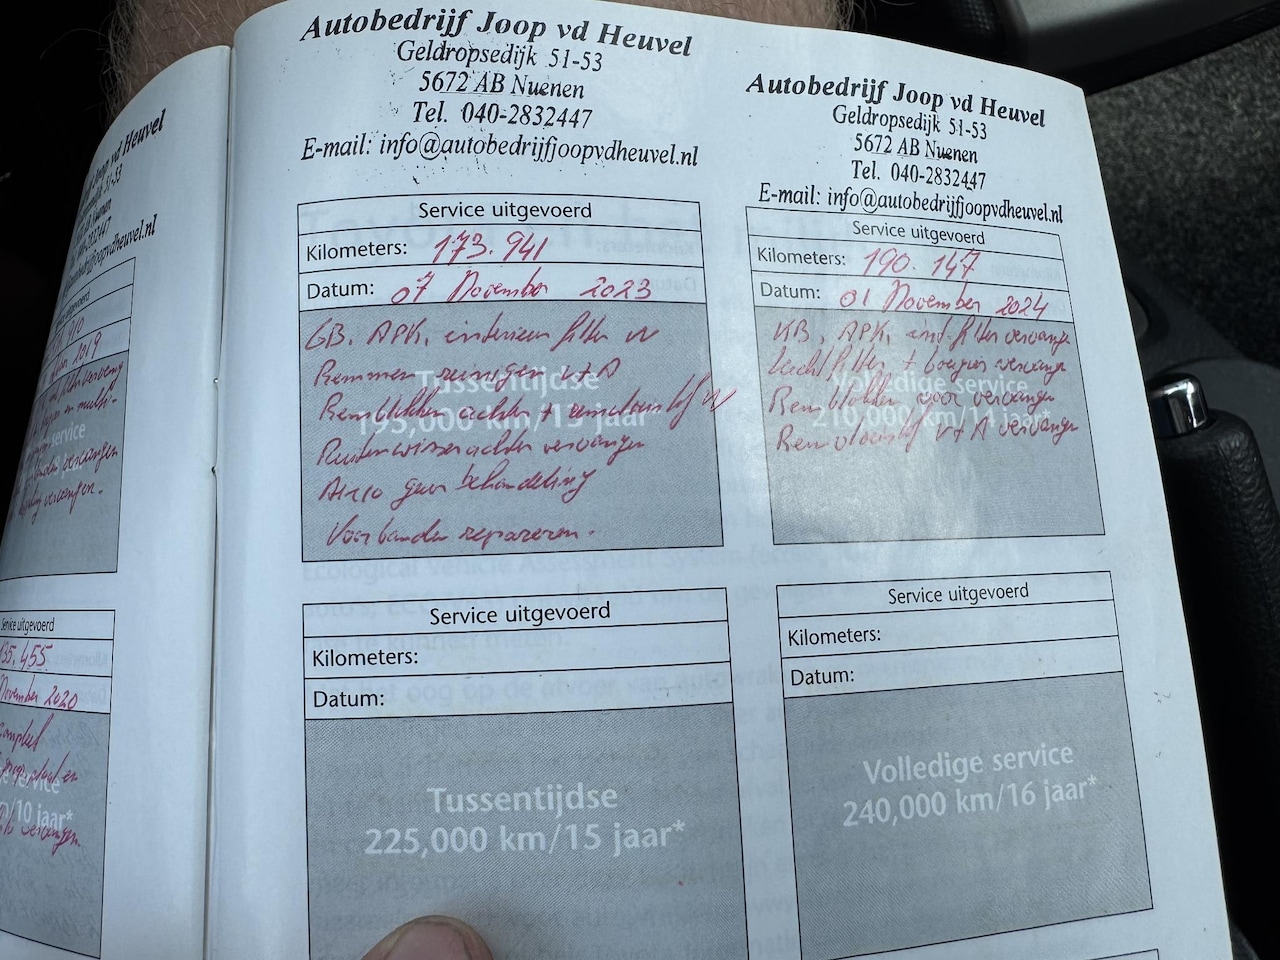 Heuvel
51-53
Autobedrijf Joop vd Heuvel
Geldropsedijk 51-53
5672 AB Nuenen
Tel. 040-2832447
E-mail: info@autobedrijfjoopvdheuvel.nl
Service uitgevoerd
Kilometers: 173.941
Datum: 07 November 2023
GB, APK, interieur filter vv
Remmen reinigen V+A
Remblokken achter + remvloeistof vv
Ruitenwisser achter vervangen
Airco geur behandeling
Voorbanden repareren.
Tussentijdse
195,000 km/13 jaar*
Autobedrijf Joop vd Heuvel
Geldropsedijk 51-53
5672 AB Nuenen
Tel. 040-2832447
E-mail: info@autobedrijfjoopvdheuvel.nl
Service uitgevoerd
Kilometers: 190.147
Datum: 01 November 2024
KB, APK, int filter vervangen
luchtfilter + bougies vervangen
Remblokken voor vervangen
Remvloeistof V+A vervangen
Volledige service
210,000 km/14 jaar*
Service uitgevoerd
135.455
November 2020
/10 jaar*
Service uitgevoerd
Kilometers:
Datum:
Tussentijdse
225,000 km/15 jaar*
Service uitgevoerd
Kilometers:
Datum:
Volledige service
240,000 km/16 jaar*